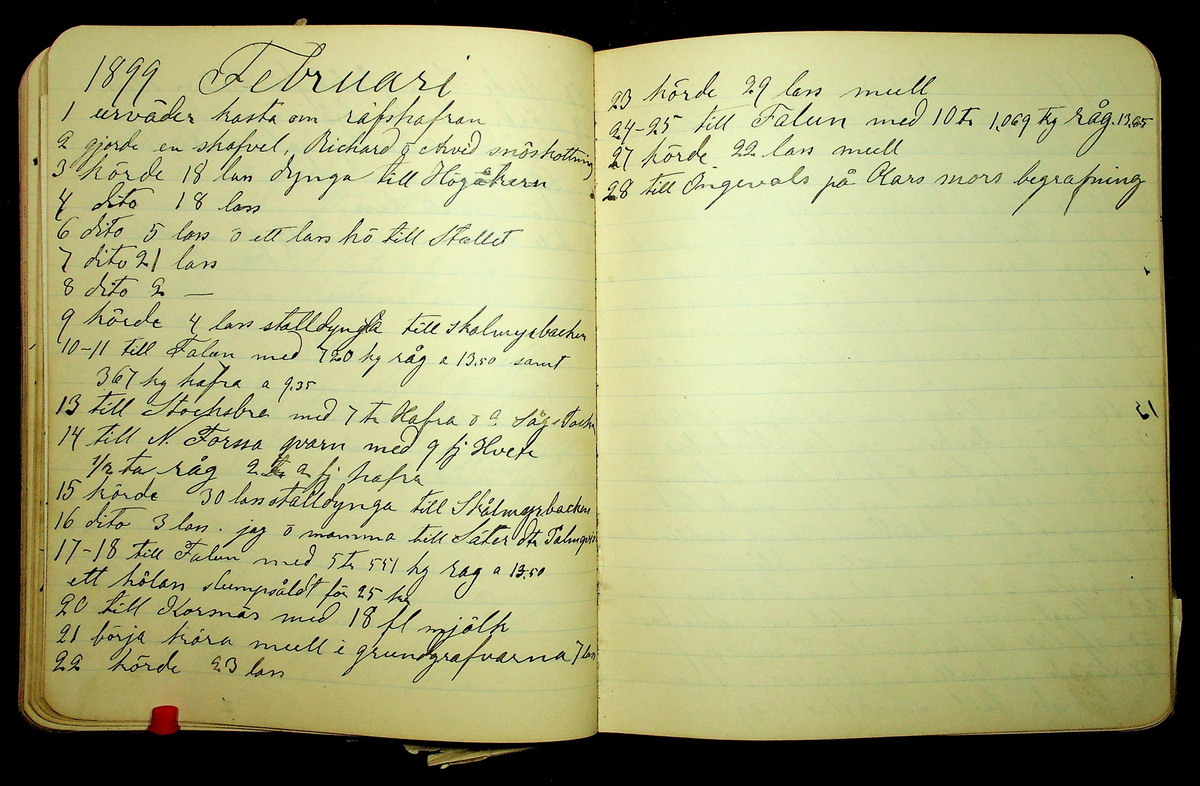 1899 Februari
1 urväder kasta om räfshafran
2 gjorde en skofvel, Richard o Arvid snöskottning
3 körde 18 lass dynga till Högåkern
4 dito 18 lass
6 dito 5 lass o ett lass hö till Stallet
7 dito 21 lass
8 dito 2 —
9 körde 4 lass ställdynga till skolmyrbacken
10-11 till Falun med 720 kg råg a 13.50 samt
367 kg hafra a 9.35
13 till Stocksbro med 7 tr Hafra o 2
14 till N. Forssa qvarn med 9 fj Hvete
1/2 ta råg 2 tr 2 fj hafra
15 körde 30 lass stalldynga till Skålmyrbacken
16 dito 3 lass. jag o mamma till Säter dtr Palmqvist
17-18 till Falun med 5 tr 551 kg råg a 13.50
ett hölass slumpsåldt för 25 kr
20 till Korsnäs med 18 fl mjölk
21 börja köra mull i grundgrafvarna 7 lass
22 körde 23 lass
23 körde 29 lass mull
24-25 till Falun med 10 tr 1,069 kg råg. 13,65
27 körde 22 lass mull
28 till Ingevals på Lars mors begrafning